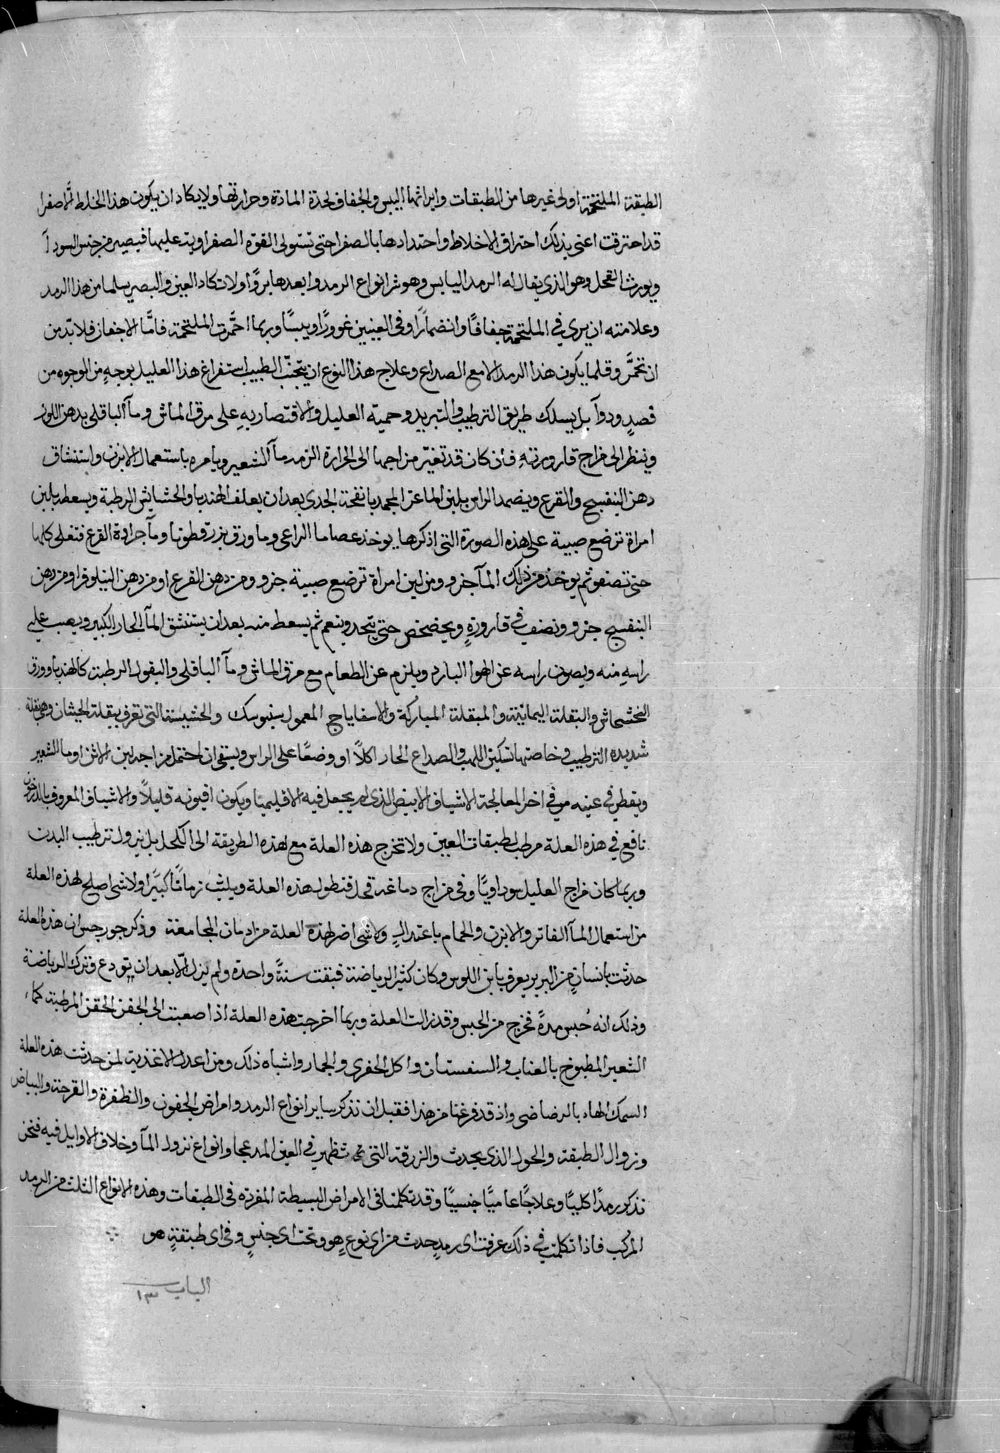 الطبقة الملتحمة او لى غيرها من الطبقات وايراثها اليبس والجفاف لحدة المادة وحرارتها ولا يكاد ان يكون هذا الخلط الا صفرا
قد احترقت اعنى بذلك احتراق الاخلاط واحتدادها بالصفرا حتى تستولى القوه الصفراويه عليها فيصير من جنس السودآ
ويورث القحل وهو الذى يقال له الرمد اليابس وهو شر انواع الرمد وابعدها بروا ولا تكاد العين والبصر يسلما من هذا الرمد
وعلامته ان يرى في الملتحمة جفافا وانضمارا وفى العينين غوورا ويبسا وربما احمرت الملتحمة فاما الاجفان فلا بد من
ان تحمر وقلما يكون هذا الرمد الا مع الصداع وعلاج هذا النوع ان يتجنب الطبيب استفراغ هذا العليل بوجه من الوجوه من
فصد ودوآ بل يسلك طريق الترطيب والتبريد وحمية العليل والاقتصار به على مرق الماش ومآ الباقلى بدهن اللوز
وينظر الى مزاج قارورته فان كان قد تغير مزاجها الى الحرارة الزمه مآ الشعير ويامره باستعمال الابزن واستنشاق
دهن البنفسج والقرع ويضمد الراس بلبن الماعز المجمد بانفحة الجدى بعد ان يعلف الهندبا والحشايش الرطبة ويسعطه بلبن
امراة ترضع صبية على هذه الصورة التى اذكرها يوخذ عصا الراعى وما ورق بزرقطونا ومآ جرادة القرع فتغلى كلها
حتى تصفو ثم يوخذ من ذلك المآ جزو ومن لبن امراة ترضع صبية جزو ومن دهن القرع او من دهن النيلوفر او من دهن
البنفسج جزو ونصف في قارورة ويخضخض حتى يتحد وينعم ثم يسعط منه بعد ان يستنشق المآ الحار الكبير ويصب على
راسه منه ويصون راسه عن الهوا البارد ويلزم عن الطعام مع مرق الماش ومآ الباقلى والبقول الرطبة كالهندبا وورق
الخشخاش والبقلة اليمانية والمبقلة المباركة والاسفاياج المعمول والحشيشة التى تعرف ببقلة
شديدة الترطيب وخاصتها تسكين اللهب والصداع الحار اكلا او وضعا على الراس ويسقى ان احتمل مزاجه لبن الاتن او ما الشعير
ويقطر في عينه في اخر المعالجة الاشياف الابيض الذى لم يجعل فيه الاقليميا ويكون افيونه قليلا والاشياف المعروف
نافع في هذه العلة مرطب لطبقات العين ولا تخرج هذه العلة مع هذه الطريقة الى الكحل بل يزول ترطيب البدن
وربما كان مزاج العليل سوداويا وفى مزاج دماغه قحل فتطول هذه العلة ويلبث زمانا كبيرا ولا شى اصلح لهذه العلة
من استعمال المآ الفاتر والابزن والحمام باعتدال ولا شى اضر لهذه العلة من ادمان المجامعة وذكر جورجس ان هذه العلة
حدثت بانسان من البربر يعرف بابن اللوس وكان كثير الرياضة فبقت سنة واحدة ولم يزل الا بعد ان تودع وترك الرياضة
وذلك انه حبس مدة فخرج من الحبس وقد زالت العلة وربما اخرجت هذه العلة اذا صعبت الى الحقن المرطبة كما
الشعير المطبوخ بالعناب والسفستان واكل الحفرى والجمار واشباه ذلك ومن اعدل الاغذية لمن حدثت هذه العلة
السمك الهاد بالرضاضى واذ قد فرغنا من هذا فقبل ان نذكر ساير انواع الرمد وامراض الجفون والظفرة والقرحة والبياض
وزوال الطبقة والحول الذى يحدث والزرقة التى تظهر في العين وانواع نزول المآ وخلاف الاوايل فيه فنحن
نذكر رمدا كليا وعلاجا عاميا جنسيا وقد تكلمنا في الامراض البسيطة المفردة في الطبقات وهذه الانواع الثلث من الرمد
المركب فاذا تكلمت في ذلك عرفت اى رمد حدث من اى نوع هو وتحت اى جنس وفى اى طبقة هو
الباب ١٣